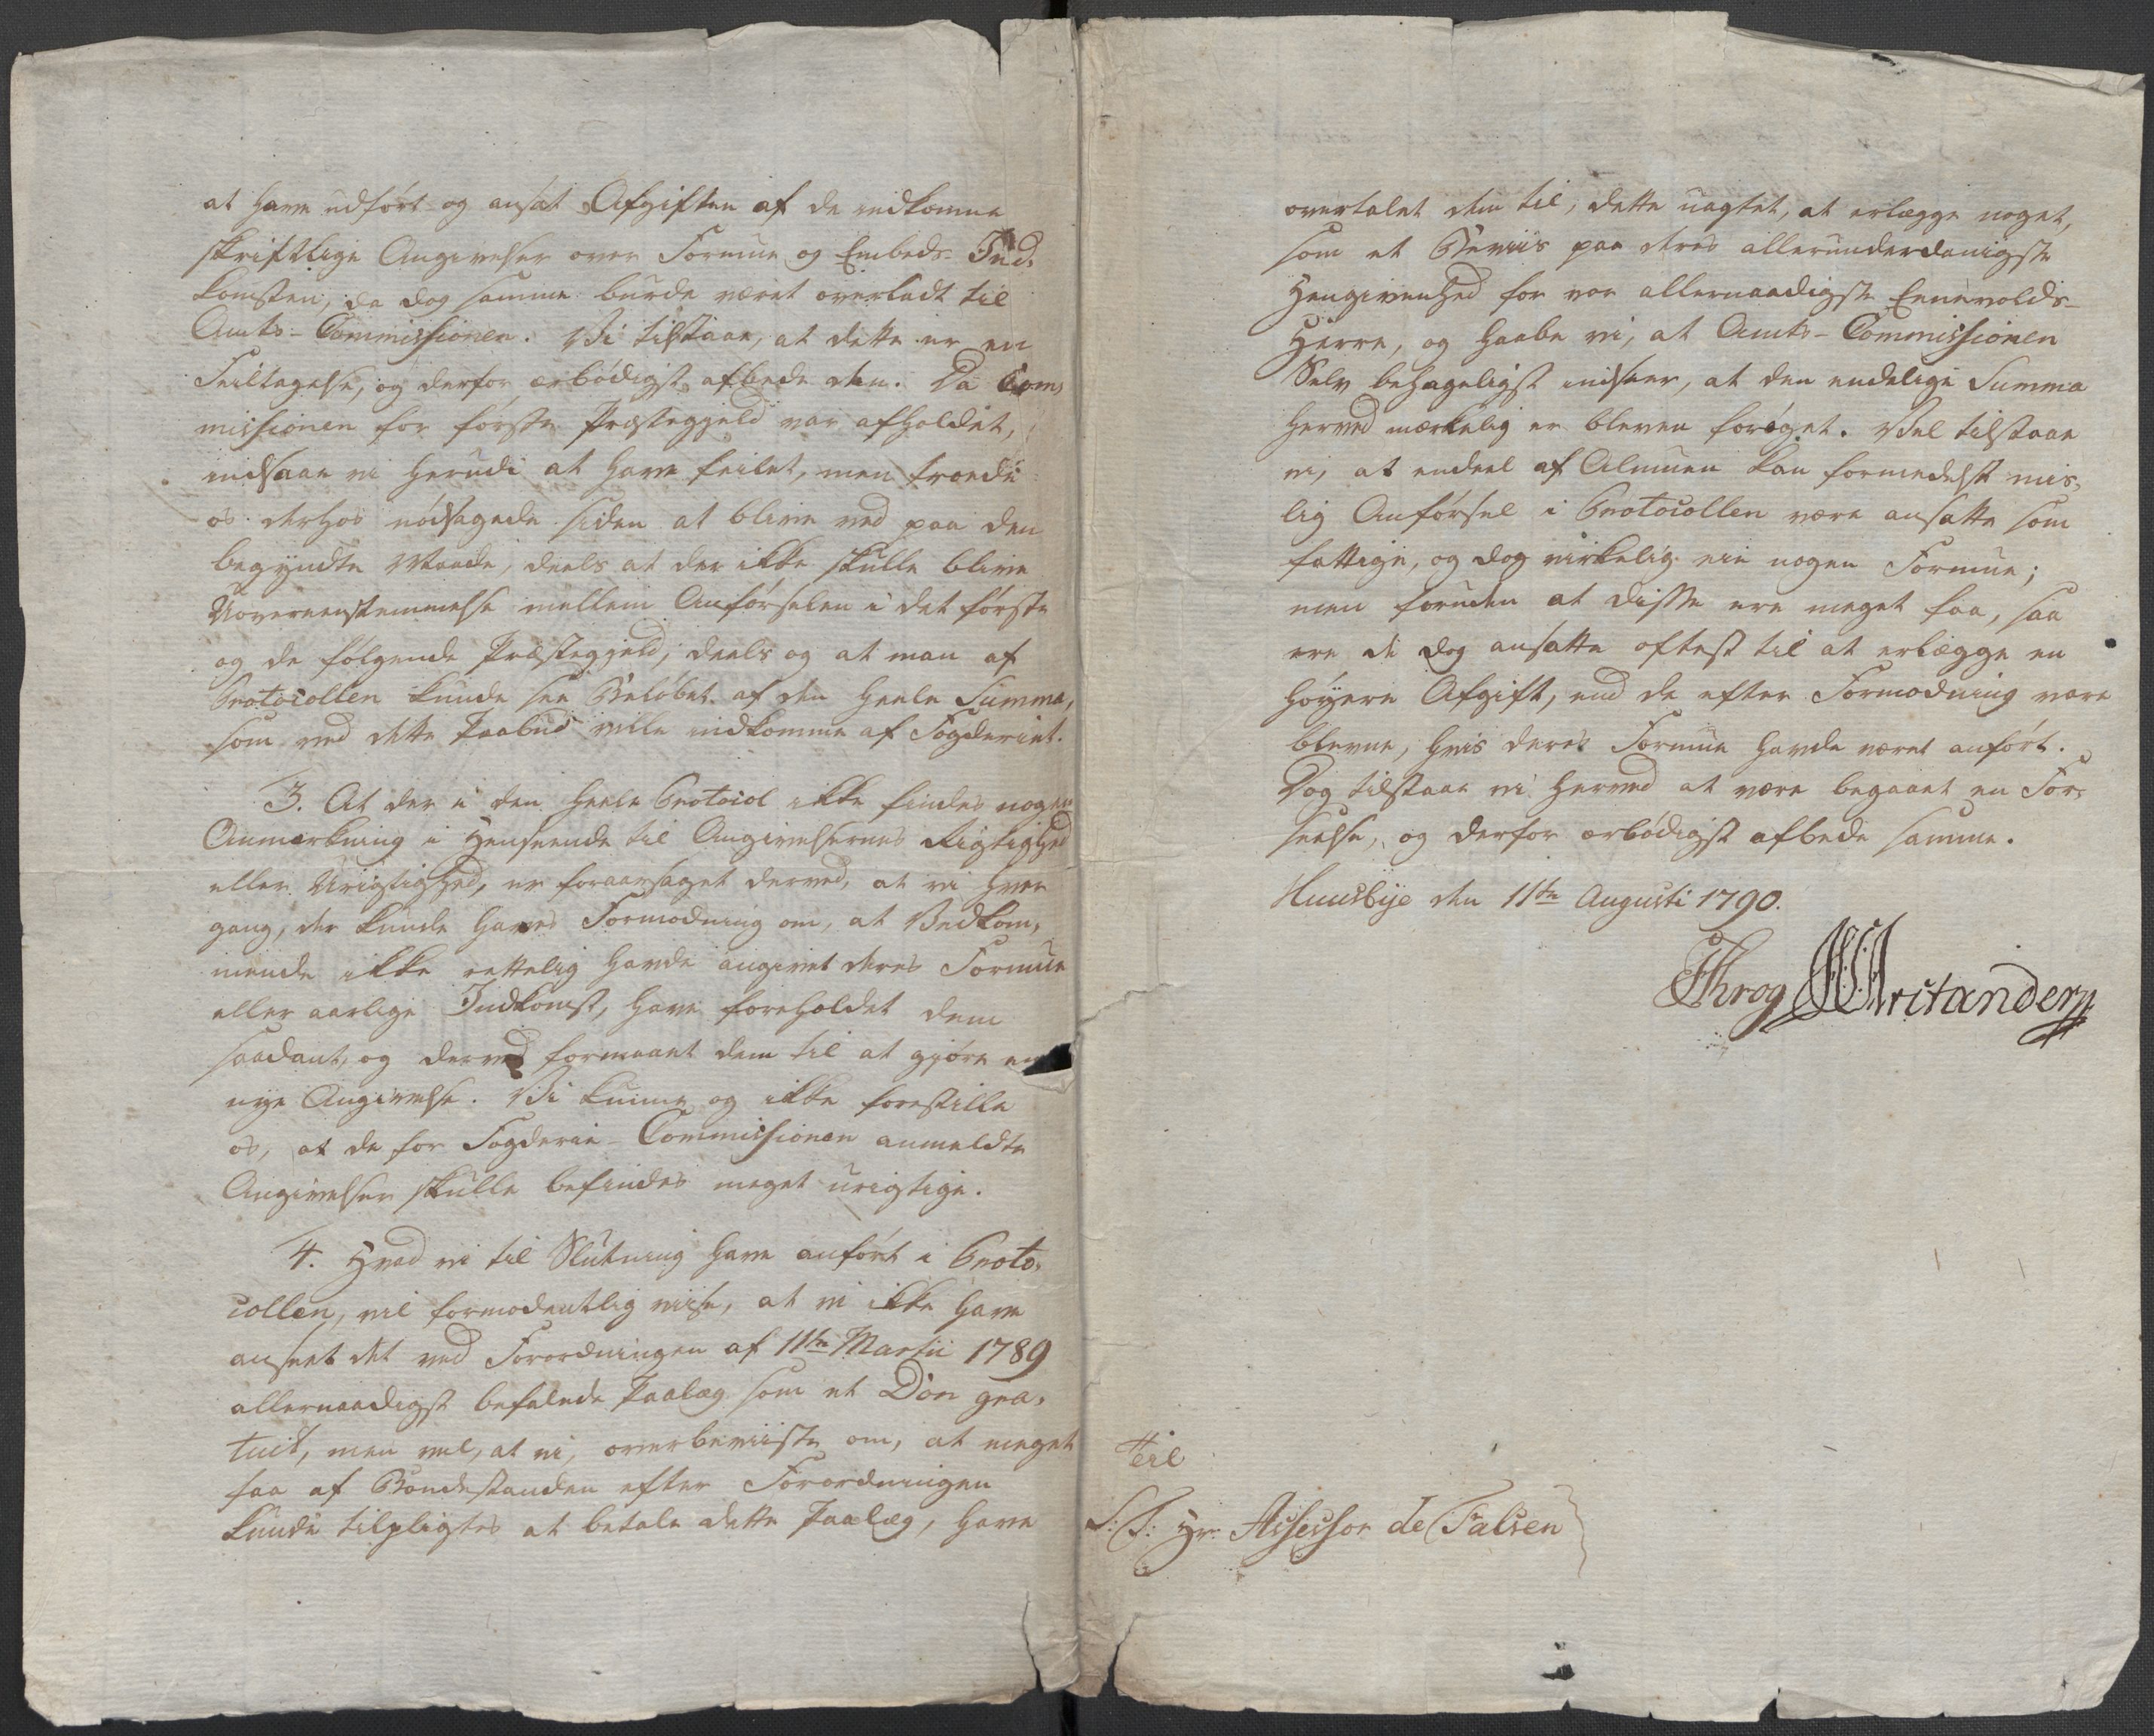 at have udført og ansat Afgiften af de indkomne
skriftlige Angivelser over Formue og Embeds-Ind-
komsten, da dog samme burde været overladt til
Amts-Commissionen. Vi tilstaae, at dette er en
Feiltagelse, og derfor ærbødigst afbede den. Da Com-
missionen for første Præstegjeld var afholdet,
indsaae vi herudi at have feilet, men troede
os derhos nødsagede siden at blive ved paa den
begyndte Maade, deels at der ikke skulle blive
Uovereensstemmelse mellem Anførselen i det første
og de følgende Præstegjeld, deels og at man af
Protocollen kunde see Beløbet af den heele Summa,
som ved dette Paabud ville indkomme af Fogderiet.
3. At der i den heele Protocol ikke findes nogen
Anmerkning i Henseende til Angivelsernes Rigtighed
eller Urigtighed, er foraarsaget derved, at vi hver
gang, der kunde haves Formodning om, at Vedkom-
mende ikke rettelig havde angivet deres Formue
eller aarlige Indkomst, have foreholdet dem
saadant, og derved formaaet dem til at gjøre en
nye Angivelse. Vi kunne og ikke forestille
os, at de for Fogderie-Commissionen anmeldte
Angivelser skulle befindes meget urigtige.
4. Hvad vi til Slutning have anført i Proto-
collen, vil formodentlig viise, at vi ikke have
anseet det ved Forordningen af 11te Martii 1789
allernaadigst befalede Paalæg som et Don gra-
tuit, men vel, at vi, overbeviiste om, at meget
faa af Bondestanden efter Forordningen
kunde tilpligtes at betale dette Paalæg, have
overtalet dem til, dette uagtet, at erlægge noget,
som et Beviis paa deres allerunderdanigste
Hengivenhed for vor allernaadigste Enevolds-
Herre, og haabe vi, at Amts-Commissionen
Selv behageligst indseer, at den endelige Summa
herved mærkelig er bleven forøget. Vel tilstaae
vi, at endeel af Almuen kan formedelst mis-
lig Anførsel i Protocollen være ansatte som
fattige, og dog virkelig eie nogen Formue;
men foruden at disse ere meget faa, saa
ere de dog ansatte oftest til at erlægge en
høyere Afgift, end de efter Formodning vare
blevne, hvis deres Formue havde været anført.
Dog tilstaae vi herved at være begaaet en For-
seelse, og derfor ærbødigst afbede samme.
Huusbye den 11te Augusti 1790.
Throg Arctander
Til
S: T: Hr. Assessor de Falsen